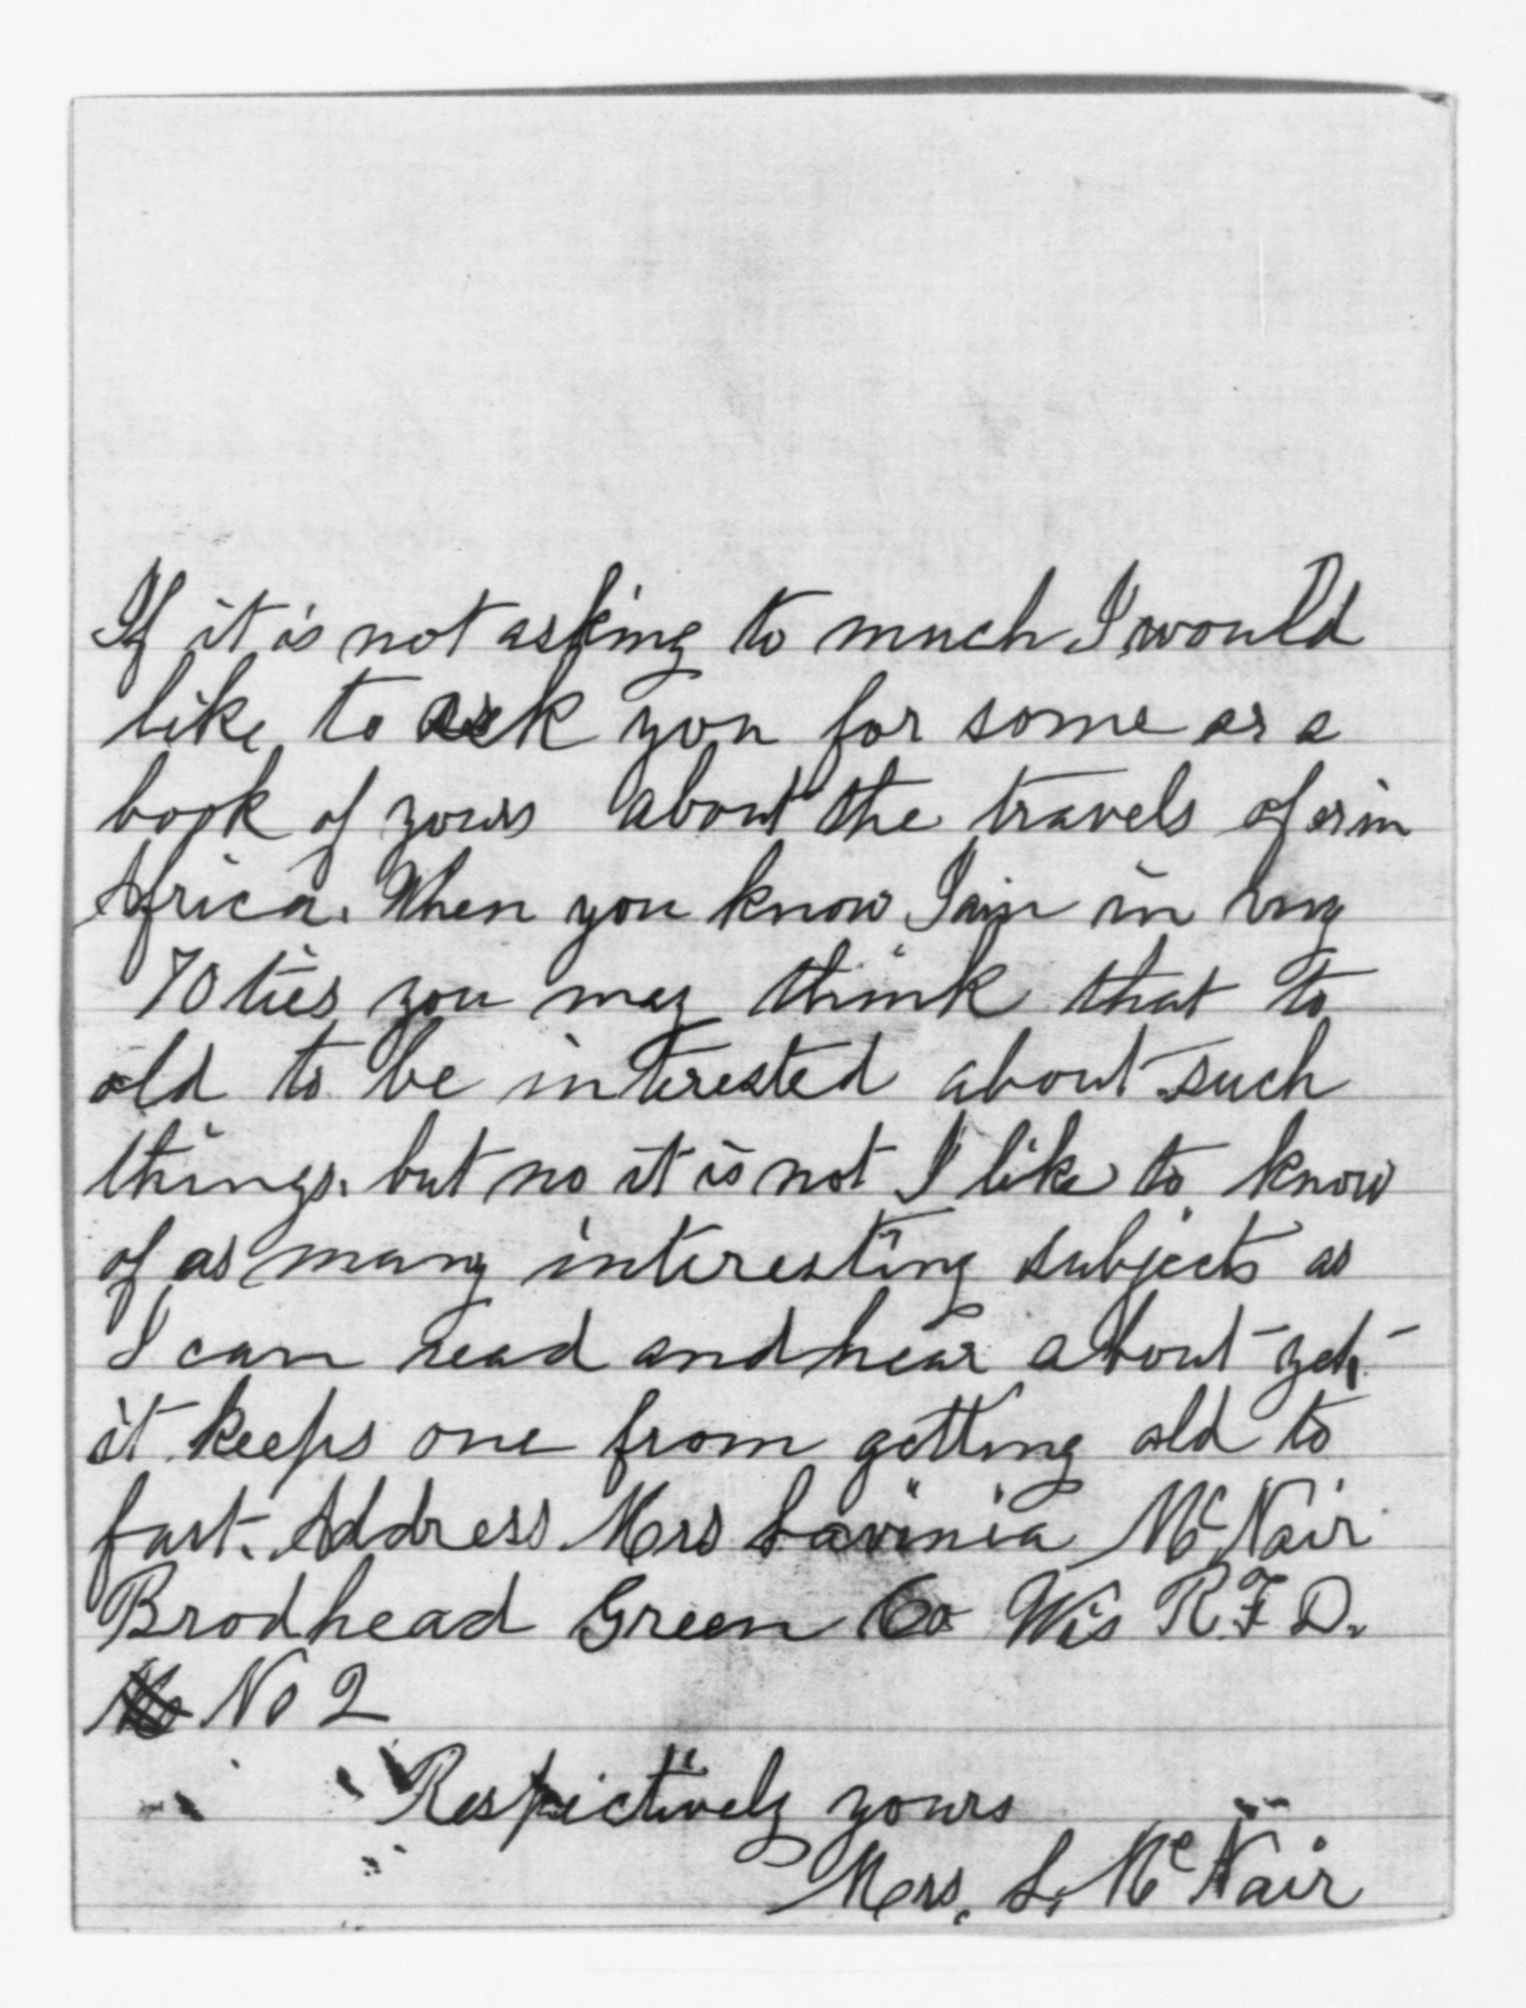 If it is not asking to much I would
like to ask you for some or a
book of yours about the travels of or in
Africa. When you know I am in my
70 ties you may think that to
old to be interested about such
things. but no it is not I like to know
of as many interesting subjects as
I can read and hear about yet,
it keeps one from getting old to
fast. Address Mrs Lavinia McNair
Brodhead Green Co Wis R.F.D.
No 2
Respictively yours
Mrs. L. McNair